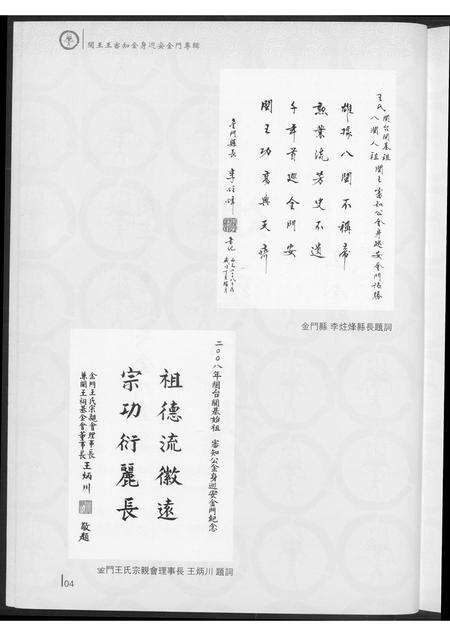 閩王王審知金身巡安金門專輯
王氏閩台開基祖
八閩人祖 閩王審知公金身巡安金門誌勝
雄據八閩不稱帝
勲業流芳史不遺
千年首巡金門安
閩王功高與天齊
金門縣長 李炷烽
金門縣 李炷烽縣長題詞
二〇〇八年閩台開基始祖 審知公金身巡安金門紀念
祖德流徽遠
宗功衍麗長
金門王氏宗親會理事長
兼閩王祠基金會董事長 王炳川 敬題
金門王氏宗親會理事長 王炳川 題詞
04